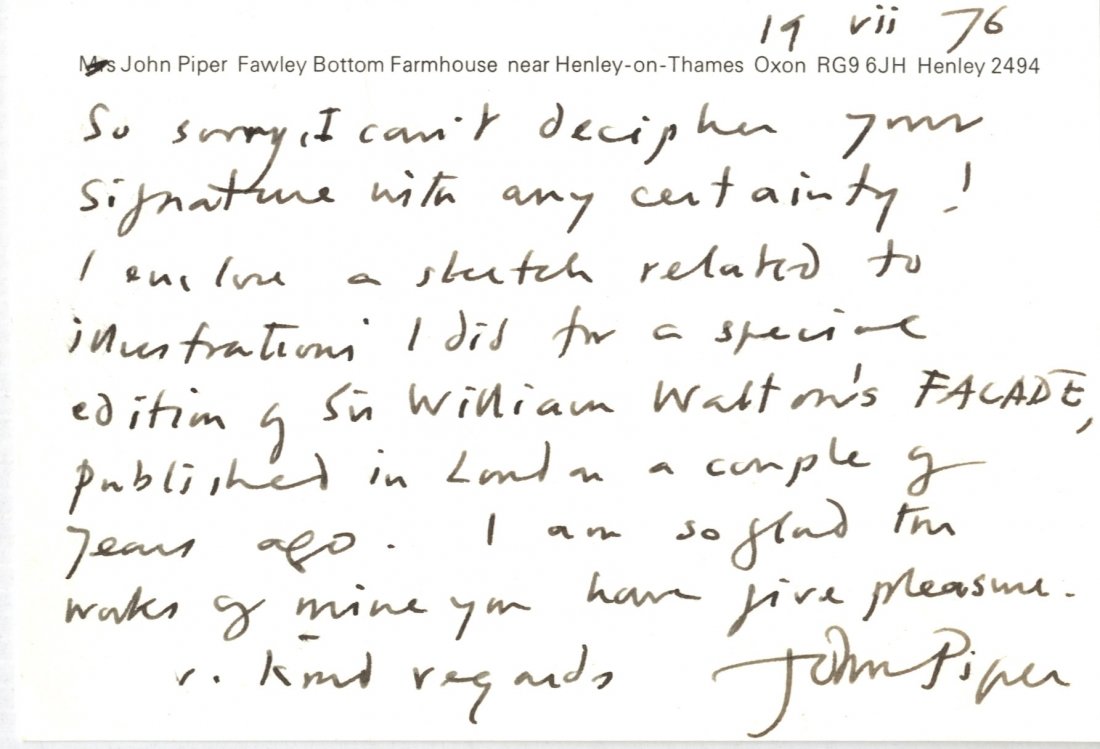 19 vii 76
Mrs John Piper Fawley Bottom Farmhouse near Henley-on-Thames Oxon RG9 6JH Henley 2494
So sorry, I can't decipher your
signature with any certainty!
I enclose a sketch related to
illustrations I did for a special
edition of Sir William Walton's FACADE,
published in London a couple of
years ago. I am so glad the
works of mine you have give pleasure.
v. kind regards John Piper